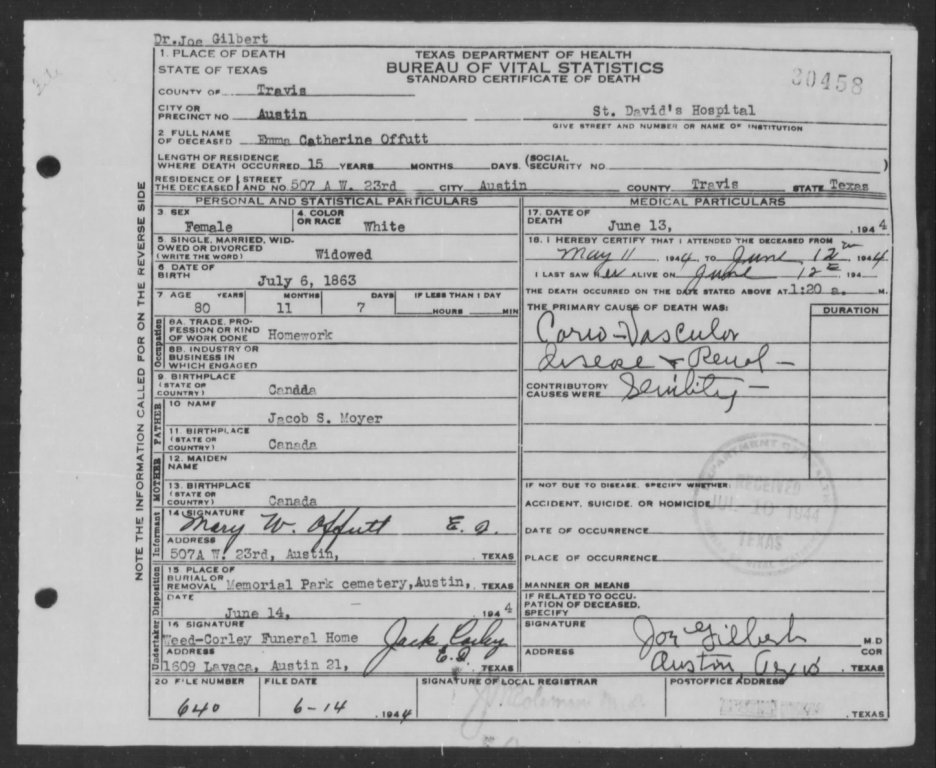 Dr. Joe Gilbert
1. PLACE OF DEATH
STATE OF TEXAS
TEXAS DEPARTMENT OF HEALTH
BUREAU OF VITAL STATISTICS
STANDARD CERTIFICATE OF DEATH
30458
COUNTY OF Travis
CITY OR PRECINCT NO Austin
St. David's Hospital
GIVE STREET AND NUMBER OR NAME OF INSTITUTION
2 FULL NAME OF DECEASED Emma Catherine Offutt
LENGTH OF RESIDENCE WHERE DEATH OCCURRED 15 YEARS MONTHS DAYS (SOCIAL SECURITY NO. )
RESIDENCE OF THE DECEASED STREET AND NO. 507 A W. 23rd CITY Austin COUNTY Travis STATE Texas
NOTE THE INFORMATION CALLED FOR ON THE REVERSE SIDE
PERSONAL AND STATISTICAL PARTICULARS
3. SEX Female
4. COLOR OR RACE White
5 SINGLE, MARRIED, WIDOWED OR DIVORCED (WRITE THE WORD) Widowed
6 DATE OF BIRTH July 6, 1863
7 AGE YEARS MONTHS DAYS IF LESS THAN 1 DAY
80 11 7 HOURS MIN
Occupation
8A. TRADE, PROFESSION OR KIND OF WORK DONE Homework
8B. INDUSTRY OR BUSINESS IN WHICH ENGAGED
9. BIRTHPLACE (STATE OR COUNTRY) Candda
FATHER
10 NAME Jacob S. Moyer
11. BIRTHPLACE (STATE OR COUNTRY) Canada
MOTHER
12. MAIDEN NAME
13. BIRTHPLACE (STATE OR COUNTRY) Canada
Informant
14 SIGNATURE Mary W. Offutt E. D.
ADDRESS 507A W. 23rd, Austin, TEXAS
Disposition
15 PLACE OF BURIAL OR REMOVAL Memorial Park cemetery, Austin, TEXAS
DATE June 14, 1944
Undertaker
16 SIGNATURE Weed-Corley Funeral Home Jack Corley
E.D.
ADDRESS 1609 Lavaca, Austin 21, TEXAS
MEDICAL PARTICULARS
17. DATE OF DEATH June 13, 1944
18. I HEREBY CERTIFY THAT I ATTENDED THE DECEASED FROM
May 11 1944 TO June 12 1944
I LAST SAW her ALIVE ON June 12th 194
THE DEATH OCCURRED ON THE DATE STATED ABOVE AT 1:20 a. M.
THE PRIMARY CAUSE OF DEATH WAS: DURATION
Cario-Vascular
disease & Renal -
CONTRIBUTORY CAUSES WERE Senility -
IF NOT DUE TO DISEASE, SPECIFY WHETHER:
ACCIDENT, SUICIDE, OR HOMICIDE
DATE OF OCCURRENCE
PLACE OF OCCURRENCE
MANNER OR MEANS
IF RELATED TO OCCUPATION OF DECEASED, SPECIFY
RECEIVED
JUL 10 1944
TEXAS
SIGNATURE Joe Gilbert M.D
ADDRESS Austin Texas COR
TEXAS
20 FILE NUMBER FILE DATE SIGNATURE OF LOCAL REGISTRAR POSTOFFICE ADDRESS
640 6-14 1944 TEXAS